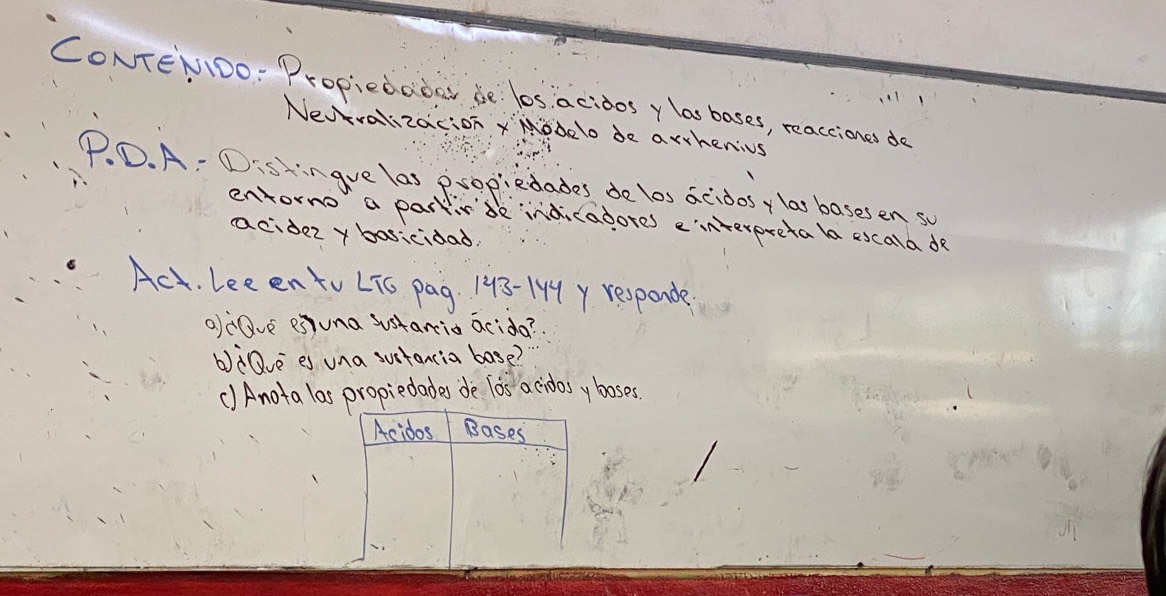 CONTENIDO: Propiedades de los acidos y las bases, reacciones de
Neutralización y Modelo de arrhenius
P.D.A: Distingue las propiedades de los ácidos y las bases en su
entorno a partir de indicadores e interpreta la escala de
acidez y basicidad.
Act. Lee en tu LTG pag. 143-144 y responde.
a) ¿Qué es una sustancia ácida?
b) ¿Qué es una sustancia base?
c) Anota las propiedades de los acidos y bases.
Acidos Bases